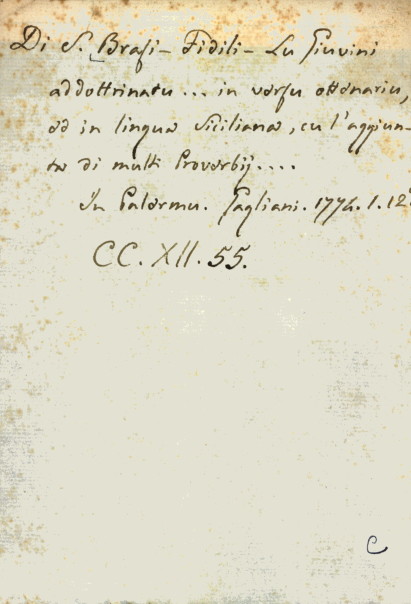 Di S. Brasi - Fidili - Lu Giuvini
addottrinatu ... in versu ottonariu,
ed in lingua Siciliana, cu l'aggiun-
ta di multi Proverbij....
In Palermu. Gagliani. 1774. 1. 12º
CC. XII. 55.
C